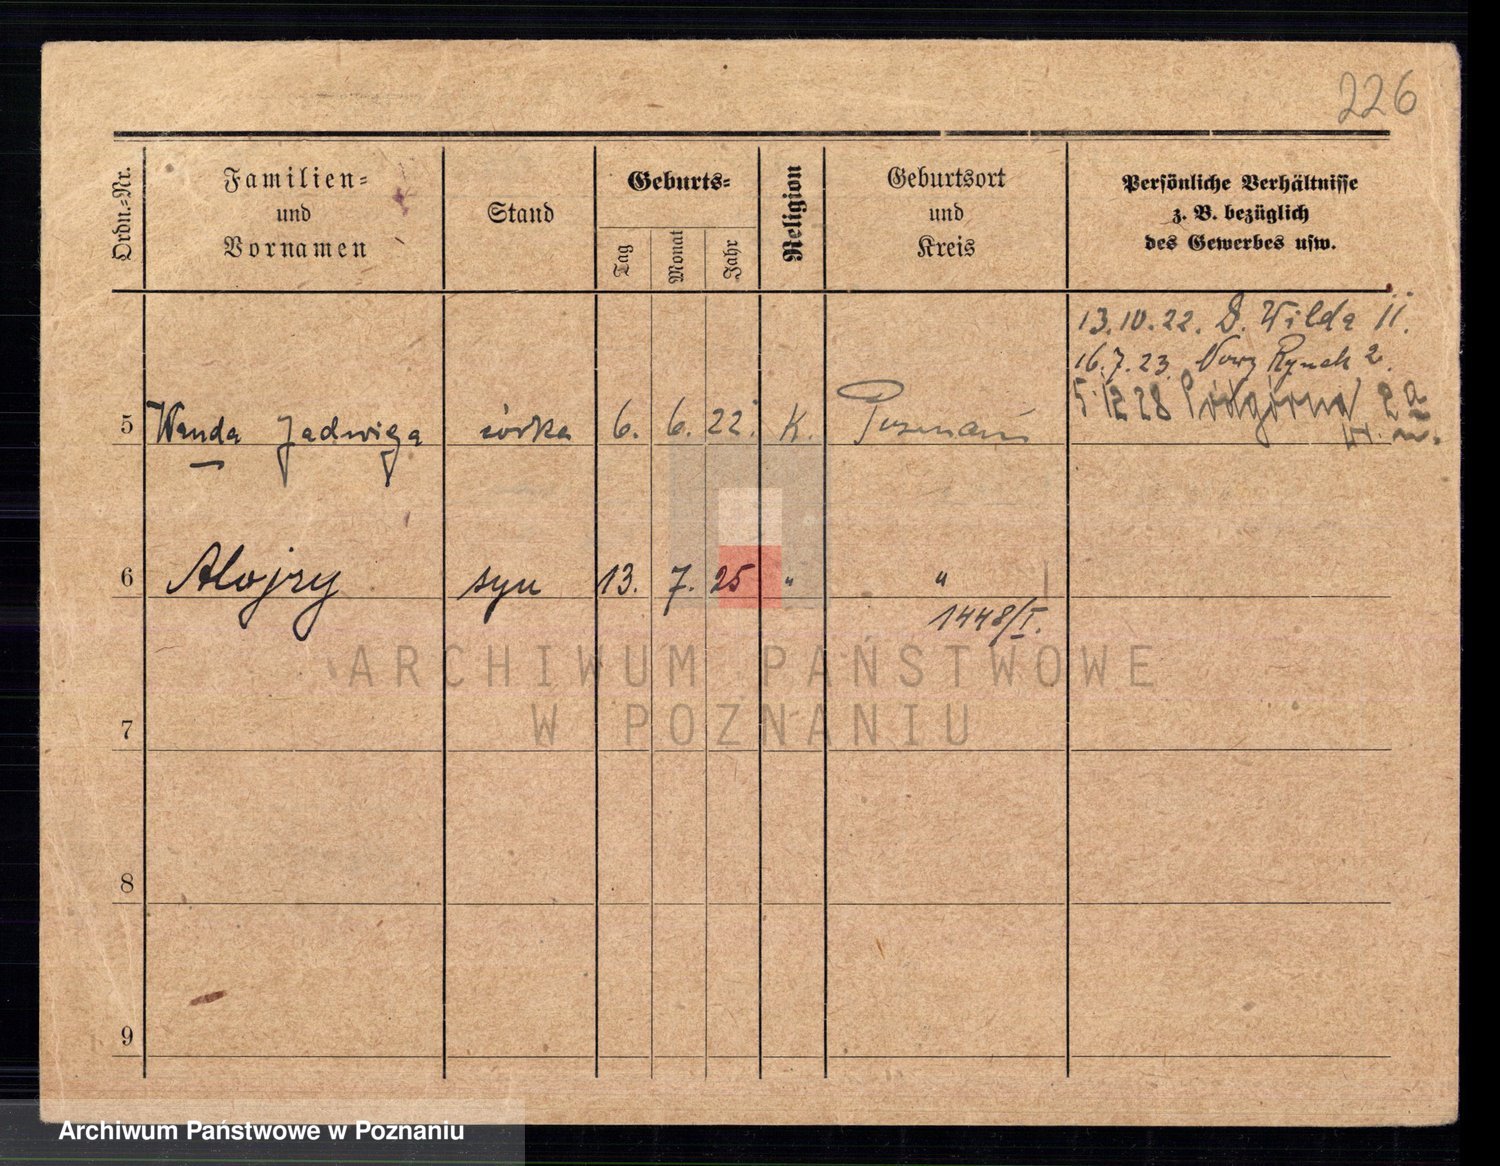 226
Ordn.-Nr.
Familien-
und
Vornamen
Stand
Geburts-
Tag
Monat
Jahr
Religion
Geburtsort
und
Kreis
Persönliche Verhältnisse
z. B. bezüglich
des Gewerbes usw.
13.10.22. D. Wilda 11.
16.7.23. Nowy Rynek 2.
5 Wanda Jadwiga córka 6. 6. 22. K. Poznań
5.12 28 Podgórna 2a
6 Alojzy syn 13. 7. 25 " "
1448/I.
7
8
9
ARCHIWUM PAŃSTWOWE
W POZNANIU
Archiwum Państwowe w Poznaniu